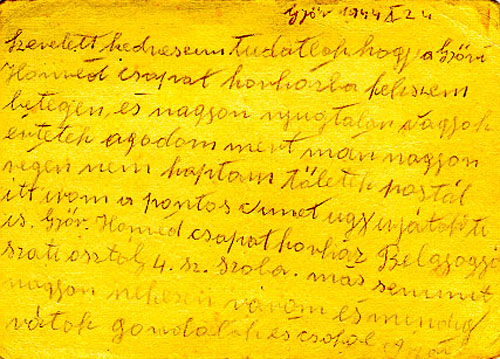 Győr 1944 X 24
Szeretett kedvesem tudatlak hogy a Győri
Honvéd csapat korházba fekszem
betegen, és nagyon nyugtalan vagyok
értetek agodom mert már nagyon
régen nem kaptam tőletek postát
itt irom a pontos cimet ugy irjátok ti
is. Győr. Honvéd csapatkorház Belgyogyá
szati osztály 4. sz. szoba. más semmit
nagyon nehezen várom és mindig
rátok gondolok és csokol